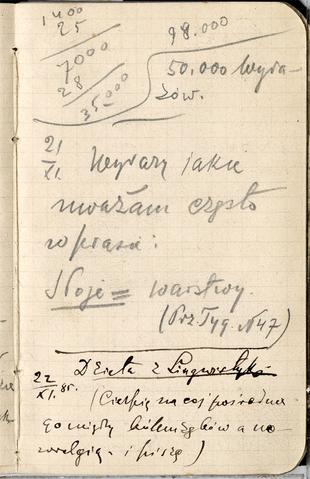 1400
25
7000
28
35000
98.000
50.000 Wyra-
zów.
21
XI.
Wyrazy jakie
uważam często
w prasie:
Słoje = warstwy.
(Prz. Tyg. N47)
22
XI. 85.
Dzieła z Lingwistyki
(Cierpię na coś pośrednie-
go między bólem zębów a ne-
wralgią - i piszę)